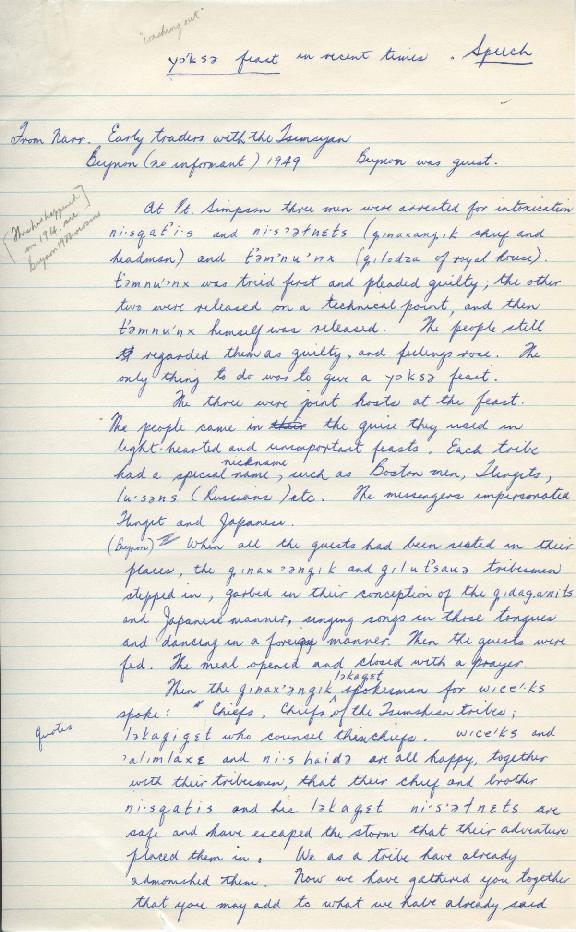 "washing out"
yɔ'ksə feast in recent times. Speech
From Narr. Early traders with the Tsimsyan
Beynon (no informant) 1949 Beynon was guest.
in 1914. see
At Pt. Simpson three men were arrested for intoxication
ni·sqat'i·s and ni·s'ətnɛts (ginaxangik chief and
headman) and t'əm'nu'nx (gilodza of royal house).
t'əmnu'nx was tried first and pleaded guilty; the other
two were released on a technical point, and then
t'əmnu'nx himself was released. The people still
regarded them as guilty, and feelings rose. The
only thing to do was to give a yɔksə feast.
The three were joint hosts at the feast.
The people came in their the guise they used in
light-hearted and unimportant feasts. Each tribe
nickname
had a special name, such as Boston men, Tlingits,
lu·səns (Russians) etc. The messengers impersonated
Tlingit and Japanese.
(Beynon) When all the guests had been seated in their
places, the ginax'angik and gilut'sauɜ tribesmen
stepped in, garbed in their conception of the gidaganits
and Japanese manner, singing songs in those tongues
and dancing in a foreign manner. Then the guests were
fed. The meal opened and closed with a prayer
ləkagɛt
Then the ginax'əngik spokesman for wicɛ'ks
spoke: "Chiefs, Chiefs of the Tsimshian tribes;
quotes
ləkagigɛt who counsel their chiefs. wicɛ'ks and
'alimlaxɛ and ni·s haidə are all happy, together
with their tribesmen, that their chief and brother
ni·sqatis and his ləkagɛt ni·s'ətnɛts are
safe and have escaped the storm that their adventure
placed them in. We as a tribe have already
admonished them. Now we have gathered you together
that you may add to what we have already said